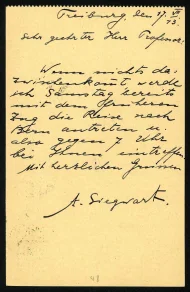 Freiburg den 27. VI 13.
Sehr geehrter Herr Professor,
Wenn nichts da-
zwischenkommt werde
ich Samstag bereits
mit dem früheren
Zug die Reise nach
Bern antreten u.
also gegen 7 Uhr
bei Ihnen eintreffen
Mit herzlichen Grüssen
A. Siegwart.